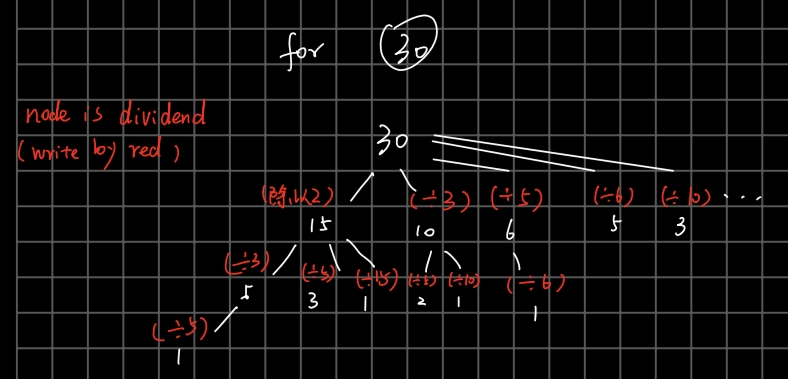 for 30
node is dividend
(write by red)
30
(除以2) (÷3) (÷5) (÷6) (÷10) ...
15 10 6 5 3
(÷3) (÷5) (÷15) (÷5) (÷10) (÷6)
5 3 1 2 1 1
(÷5)
1